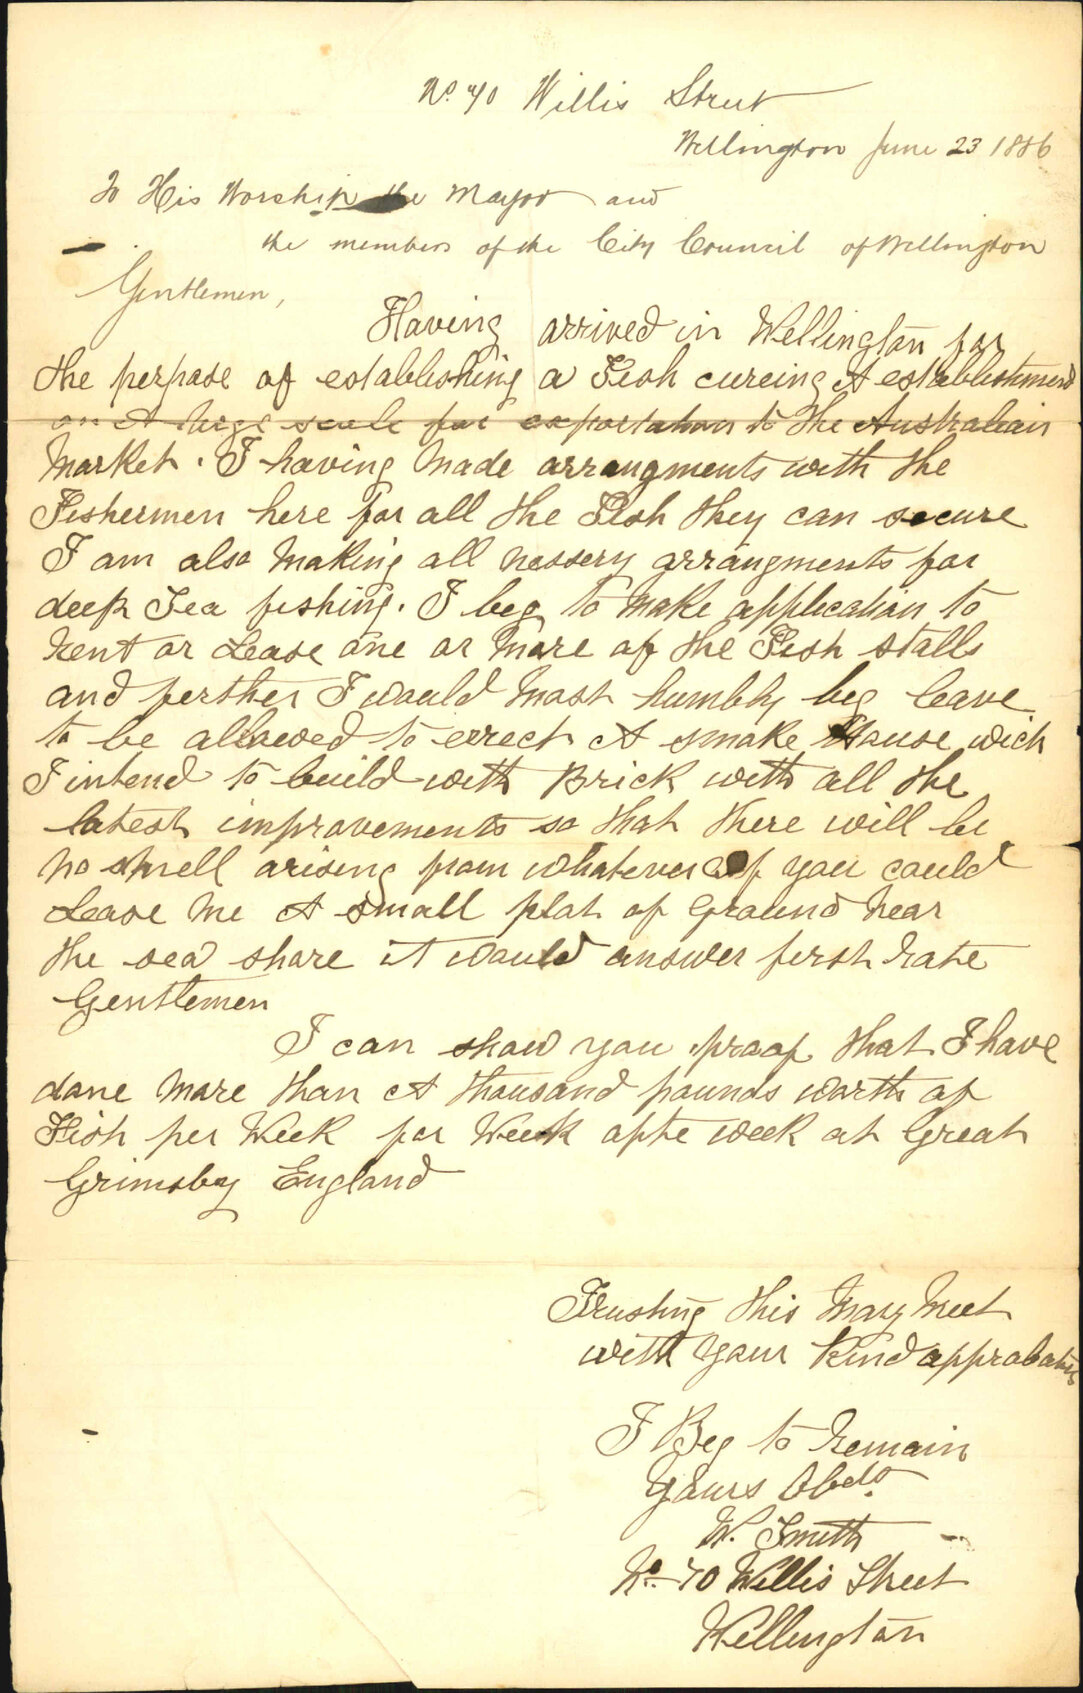 No. 70 Willis Street
Wellington June 23 1886
To His Worship the Mayor and
the members of the City Council of Wellington
Gentlemen,
Having arrived in Wellington for
the perpose of establishing a Fish cureing A establishment
on A large scale for exportation to the Australian
Market. I having Made arrangments with the
Fishermen here for all the Fish they can secure
I am also Making all nessery arrangments for
deep Sea fishing. I beg to Make application to
Rent or Lease one or More of the Fish stalls
and ferther I would Most humbly beg leave
to be allowed to errect A smoke House wich
I intend to build with Brick with all the
latest improvements so that there will be
no smell arising from whatever if you could
Lease Me A small plot of Ground Near
the sea shore it would answer first Rate
Gentlemen
I can show you proof that I have
done More than A thousand pounds worth of
Fish per Week for Week afte week at Great
Grimsby England
Trusting this May Meet
with your Kind approbation
I Beg to Remain
Yours Obdt.
W. Smith
No. 70 Willis Street
Wellington